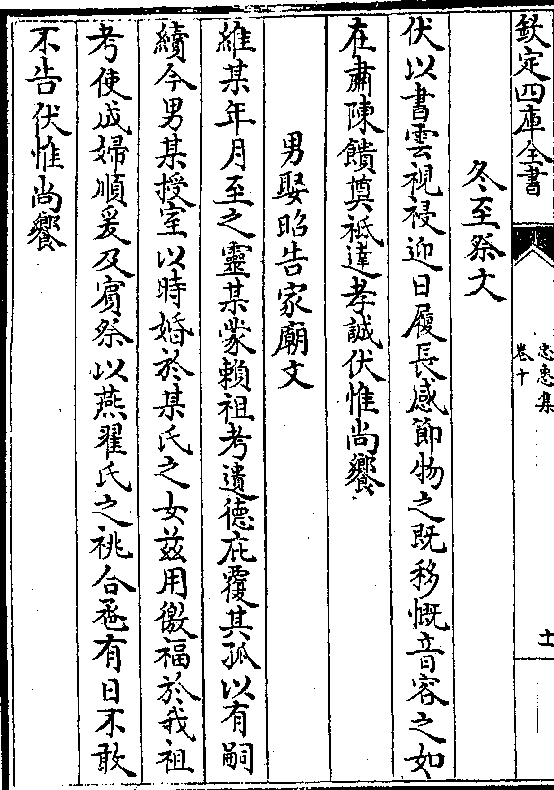 欽定四庫全書
忠惠集
卷十
士
冬至祭文
伏以書雲視祲迎日履長感節物之既移慨音容之如
在肅陳饋奠祗達孝誠伏惟尚饗
男娶昭告家廟文
維某年月至之靈某蒙賴祖考遺德庇覆其孤以有嗣
續今男某授室以時婚於某氏之女茲用徼福於我祖
考使成婦順爰及賓祭以燕翟氏之祧合巹有日不敢
不告伏惟尚饗